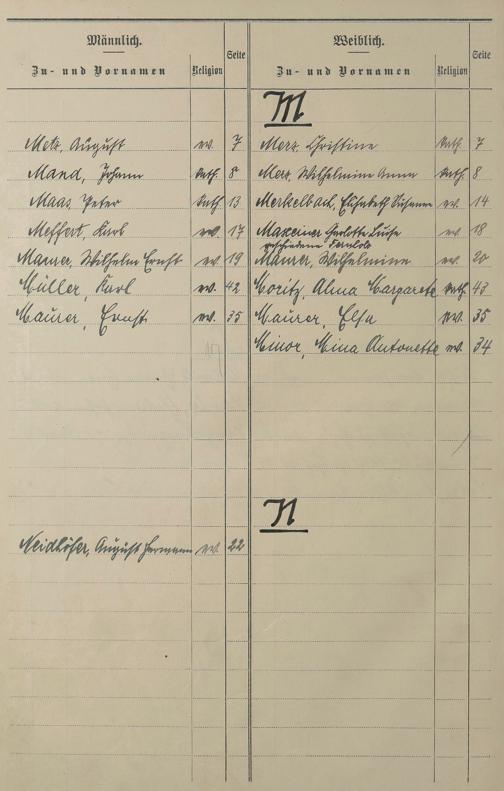 Männlich.
Zu- und Vornamen Religion Seite
Metz, August ev. 7
Mand, Johann kath. 8
Maas Peter kath. 13
Meffert, Karl ev. 17
Maurer, Wilhelm Ernst ev. 19
Müller, Karl ev. 42
Maurer, Ernst ev. 35
Neidhöfer, August Hermann ev. 22
Weiblich.
Zu- und Vornamen Religion Seite
M
Merz, Christine kath. 7
Merz, Wilhelmine Anna kath. 8
Merkelbach, Elisabeth Susanna ev. 14
Maxeiner Karlotte Luise ev. 18
geschiedene
Maurer, Wilhelmine ev. 20
Moritz, Alma Margarete kath. 43
Maurer, Elsa ev. 35
Minor, Mina Antonette ev. 34
N